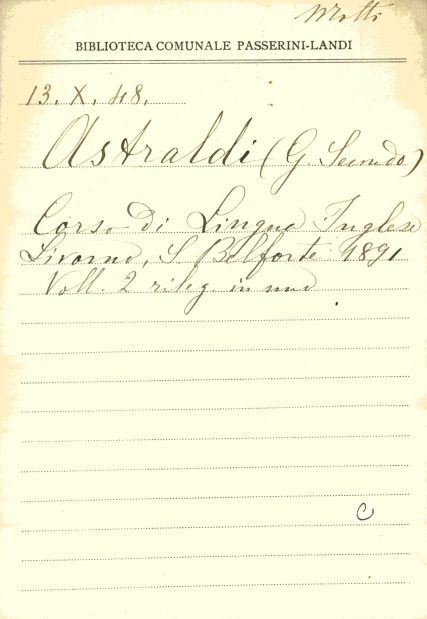 Motti
BIBLIOTECA COMUNALE PASSERINI-LANDI
13. X. 48.
Astraldi (G. Secondo)
Corso Di Lingua Inglese
Livorno, S Belforte 1891
Voll. 2 rileg. in uno
C